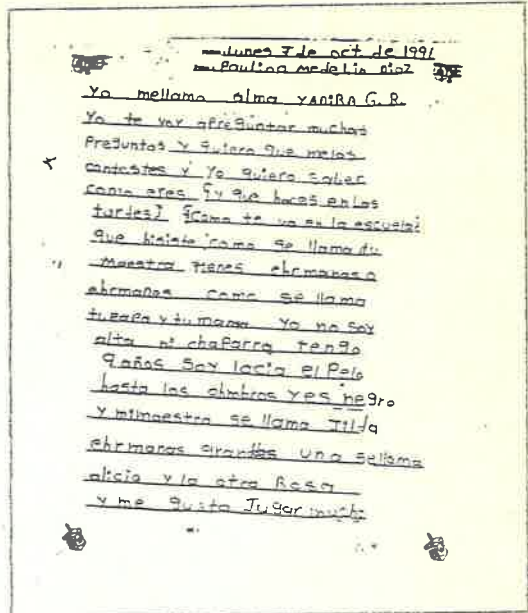 lunes 7 de oct de 1991
Paulina medelin Diaz
Yo mellamo alma YADIRA G. R.
Yo te voy apreguntar muchas
Preguntas y quiero que melas
contestes y Yo quiero saber
como eres ¿y que haces en las
turdes? ¿Como te va en la escuela?
que hisiste como se llama tu
maestra tienes ehrmanas o
ehrmanos como se llama
tu papa y tu mama Yo no soy
alta ni chaparra tengo
9 años soy lacia el Pelo
hasta los ohmbros y es negro
y mimaestra se llama Jilda
ehrmanas una sellama
alicia y la otra Rosa
y me gusta Jugar mucho